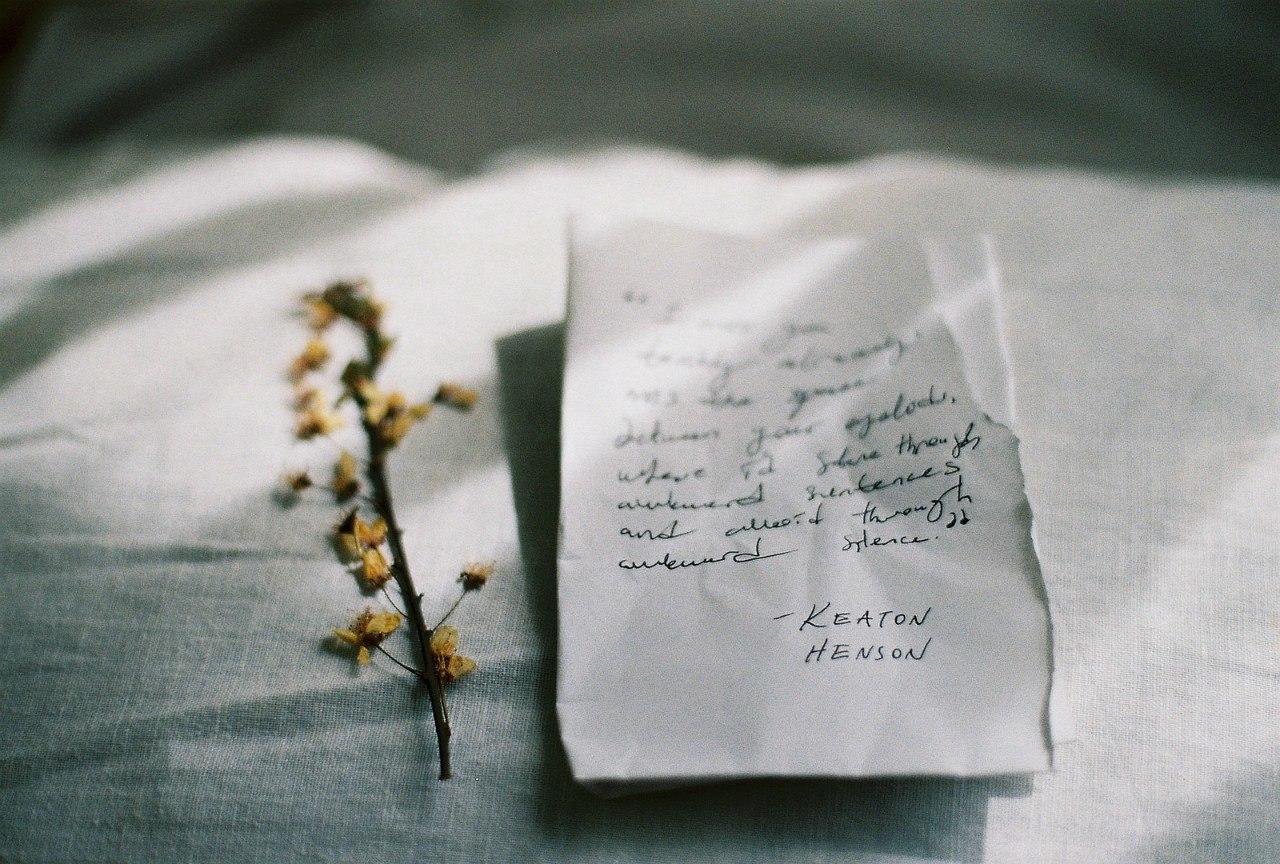 " I miss you
terribly already,
miss the space
between your eyelids,
where I'd stare through
awkward sentences
and avoid through
awkward silence."
- KEATON
HENSON